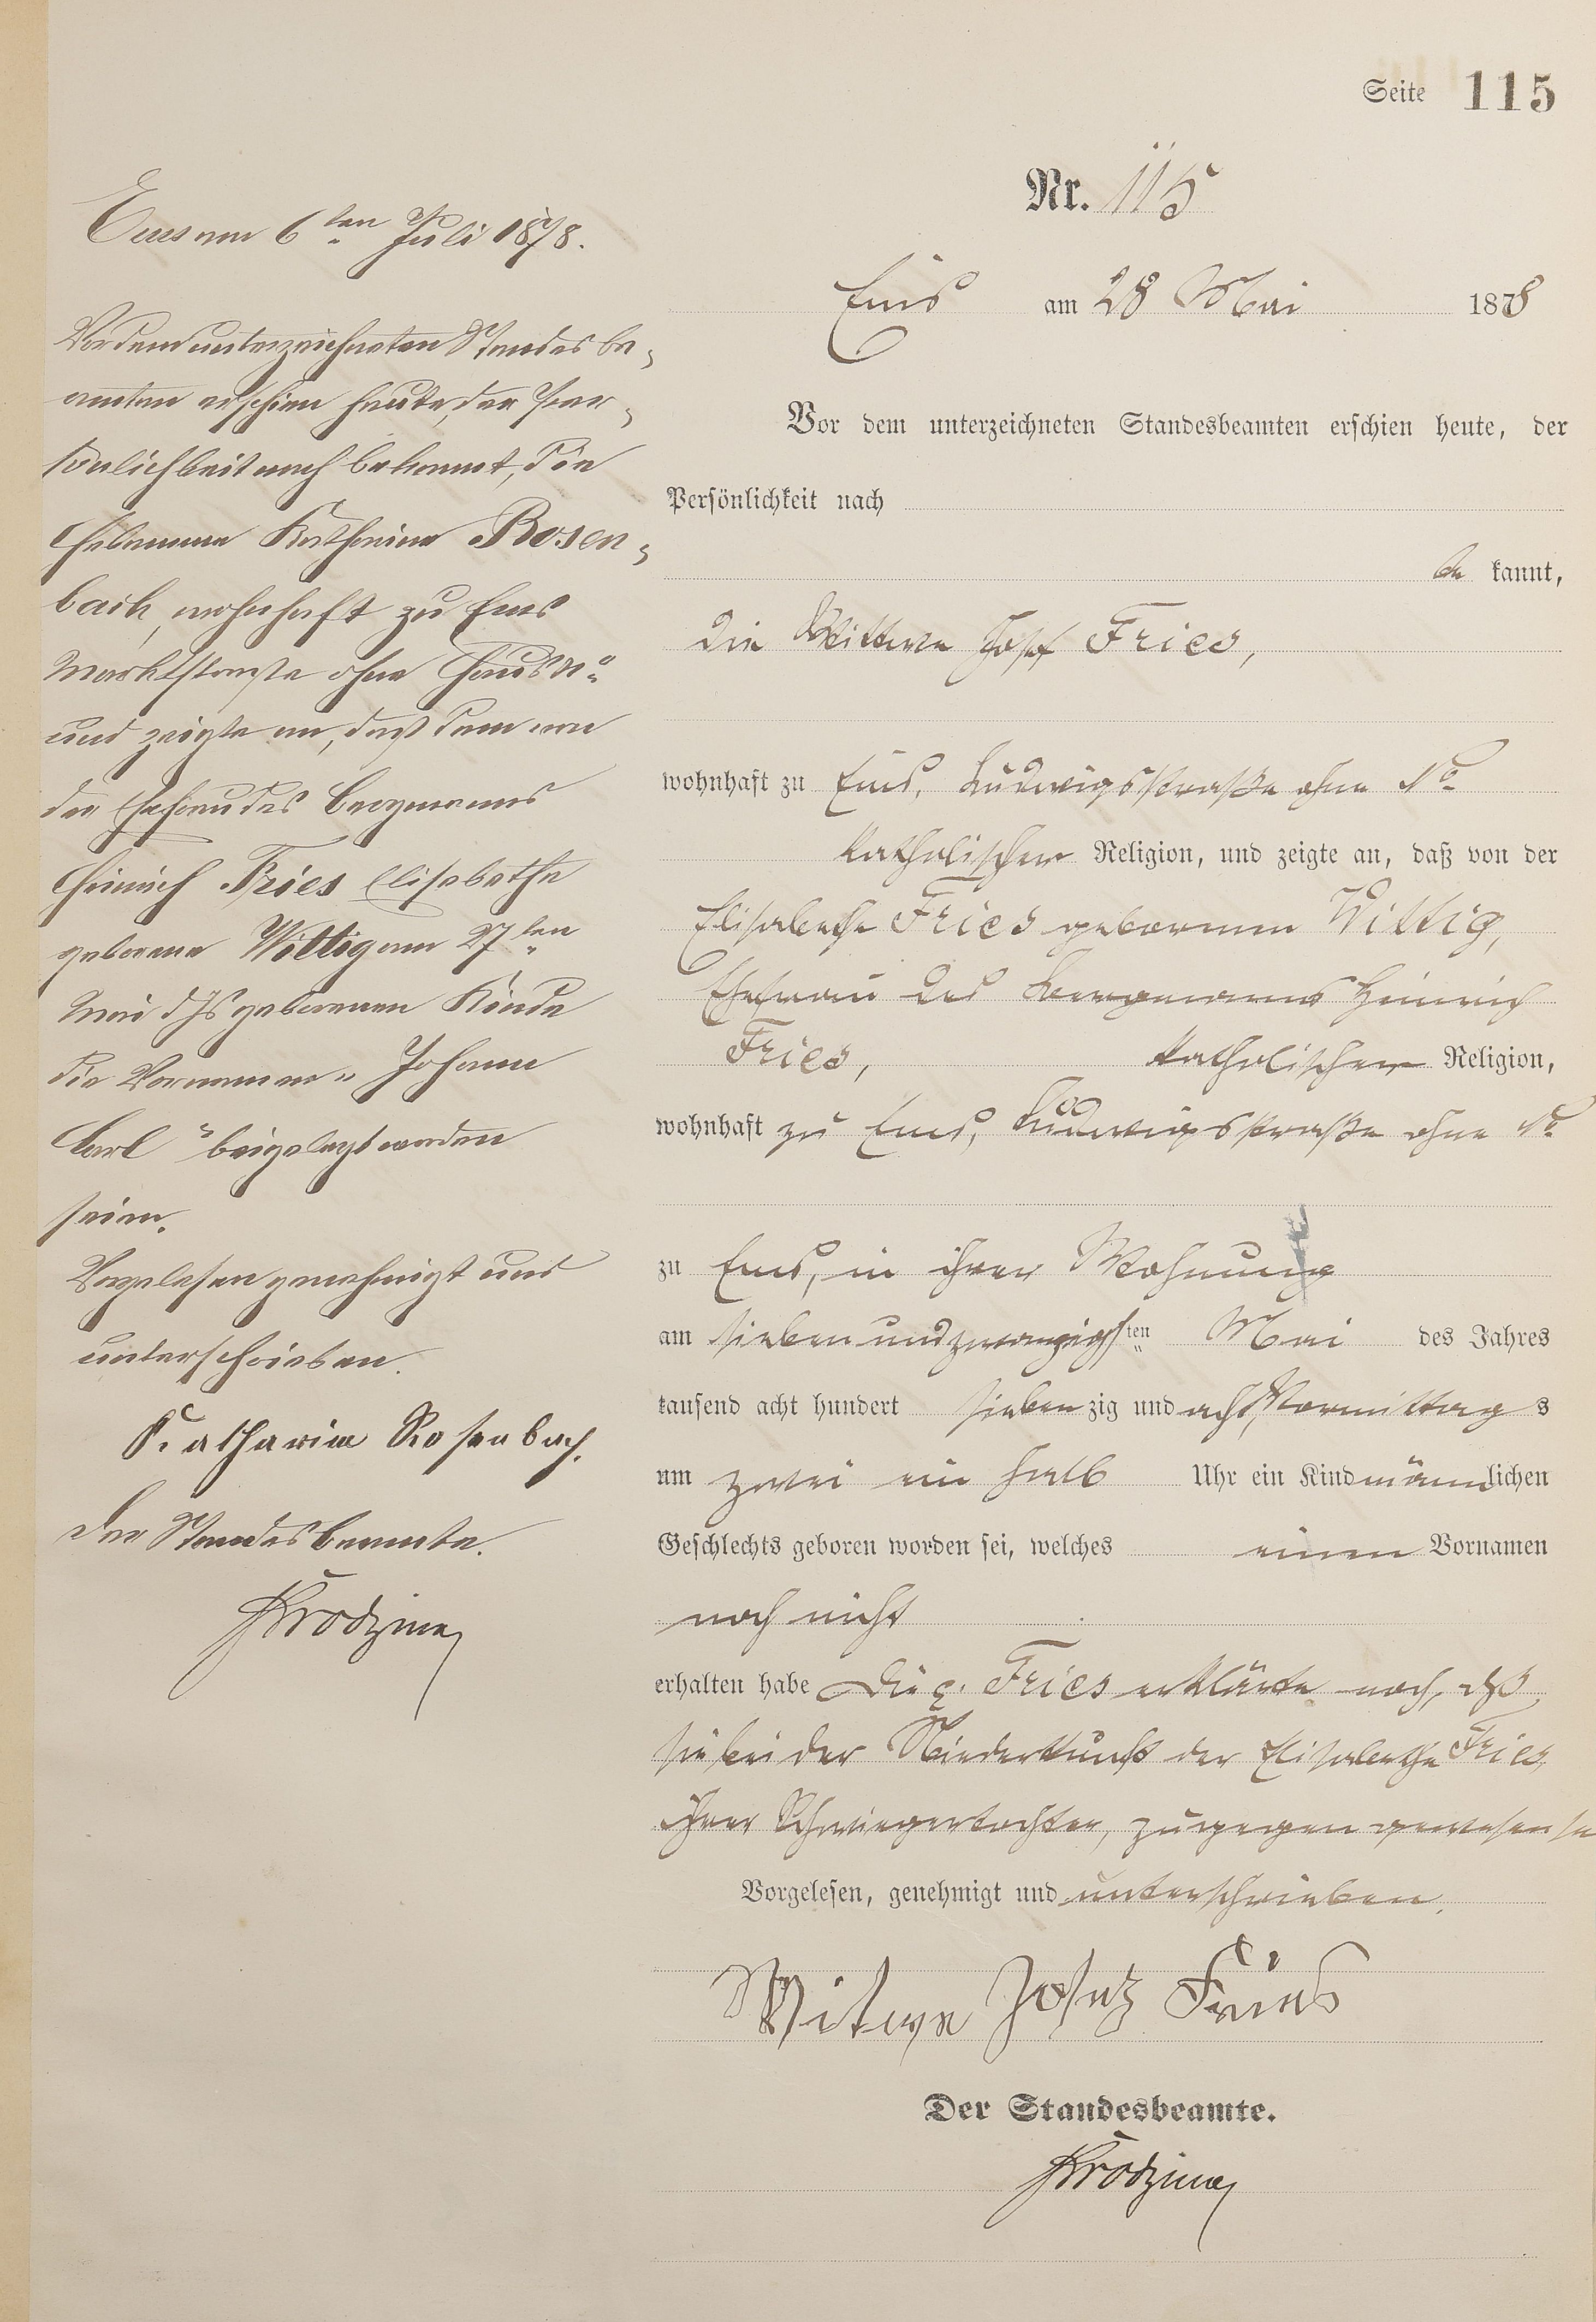 Seite 115
Nr. 115
Ems am 28 Mai 1878
Vor dem unterzeichneten Standesbeamten erschien heute, der
Persönlichkeit nach
be kannt,
die Wittwe Josef Fries,
wohnhaft zu Ems, Ludwigsstraße ohne No
katholischer Religion, und zeigte an, daß von der
Elisabethe Fries geborenen Wittig,
Ehefrau des Bergmanns Heinrich
Fries, katholischer Religion,
wohnhaft zu Ems, Ludwigsstraße ohne No
zu Ems, in ihrer Wohnung
am sieben und zwanzigsten Mai des Jahres
tausend acht hundert siebenzig und acht, Vormittags
um zwei ein halb Uhr ein Kind männlichen
Geschlechts geboren worden sei, welches einen Vornamen
noch nicht
erhalten habe Die Fries erklärte noch, daß
sie bei der Niederkunft der Elisabethe Fries
ihrer Schwiegertochter, zugegen gewesen se
Vorgelesen, genehmigt und unterschrieben.
Witwe Josef Fries
Der Standesbeamte.
Ems am 6ten Juli 1878.
Vor dem unterzeichneten Standesbe-
amten erschien heute, der Per-
sönlichkeit nach bekannt, die
Hebamme Katharina Rosen-
bach, wohnhaft zu Ems
Marktstraße ohne Haus No
und zeigte an, daß dem von
der Ehefrau des Bergmanns
Heinrich Fries Elisabethe
geborene Wittig am 27ten
Mai d Js geborenen Kinde
die Vornamen „Johann
Carl" beigelegt worden
seien.
Vorgelesen genehmigt und
unterschrieben.
Katharina Rosenbach.
Der Standesbeamte.